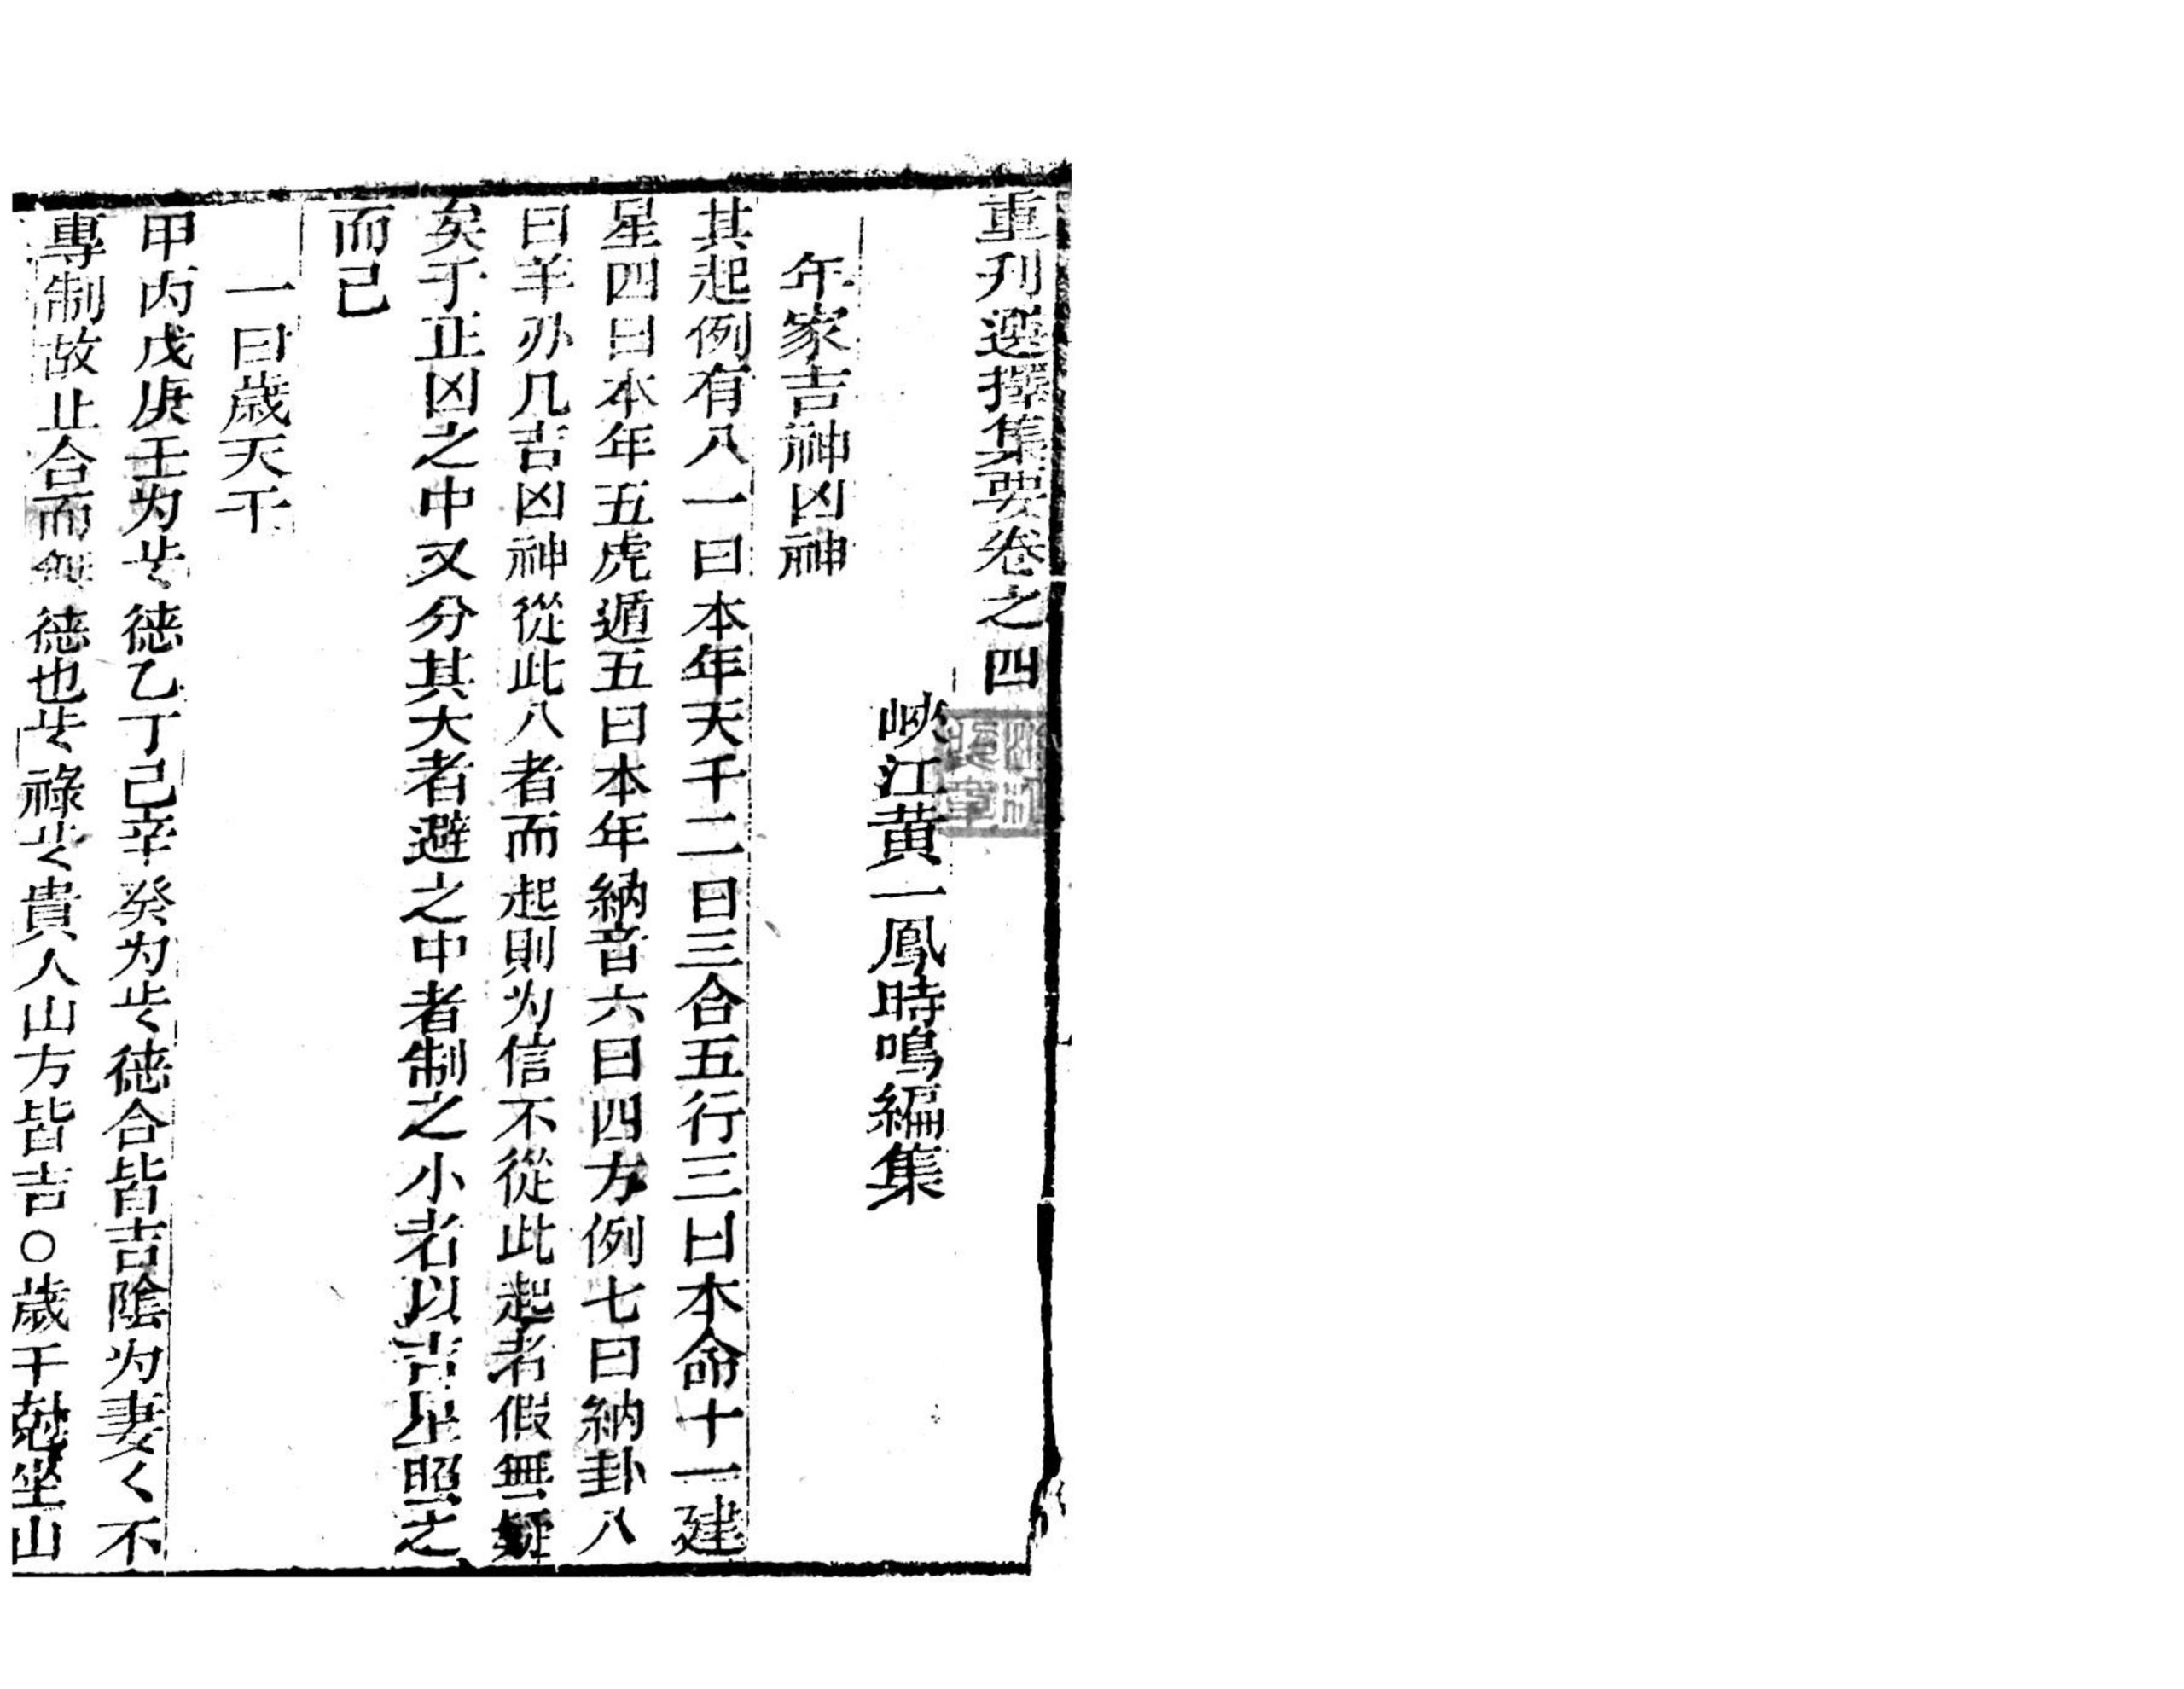 重刋選擇集要卷之四
峽江黃一鳳時鳴編集
年家吉神凶神
其起例有八一曰本年天干二曰三合五行三曰本命十一建
星四曰本年五虎遁五曰本年納音六曰四方例七曰納卦八
曰羊刃几吉凶神從此八者而起則为信不從此起者假無疑
矣于正凶之中又分其大者避之中者制之小者以吉星照之
而已
一曰歲天干
甲丙戊庚壬为歲德乙丁己辛癸为歲德合皆吉陰为妻く不
專制故止合而無德也歲祿歲貴人山方皆吉○歲干尅坐山